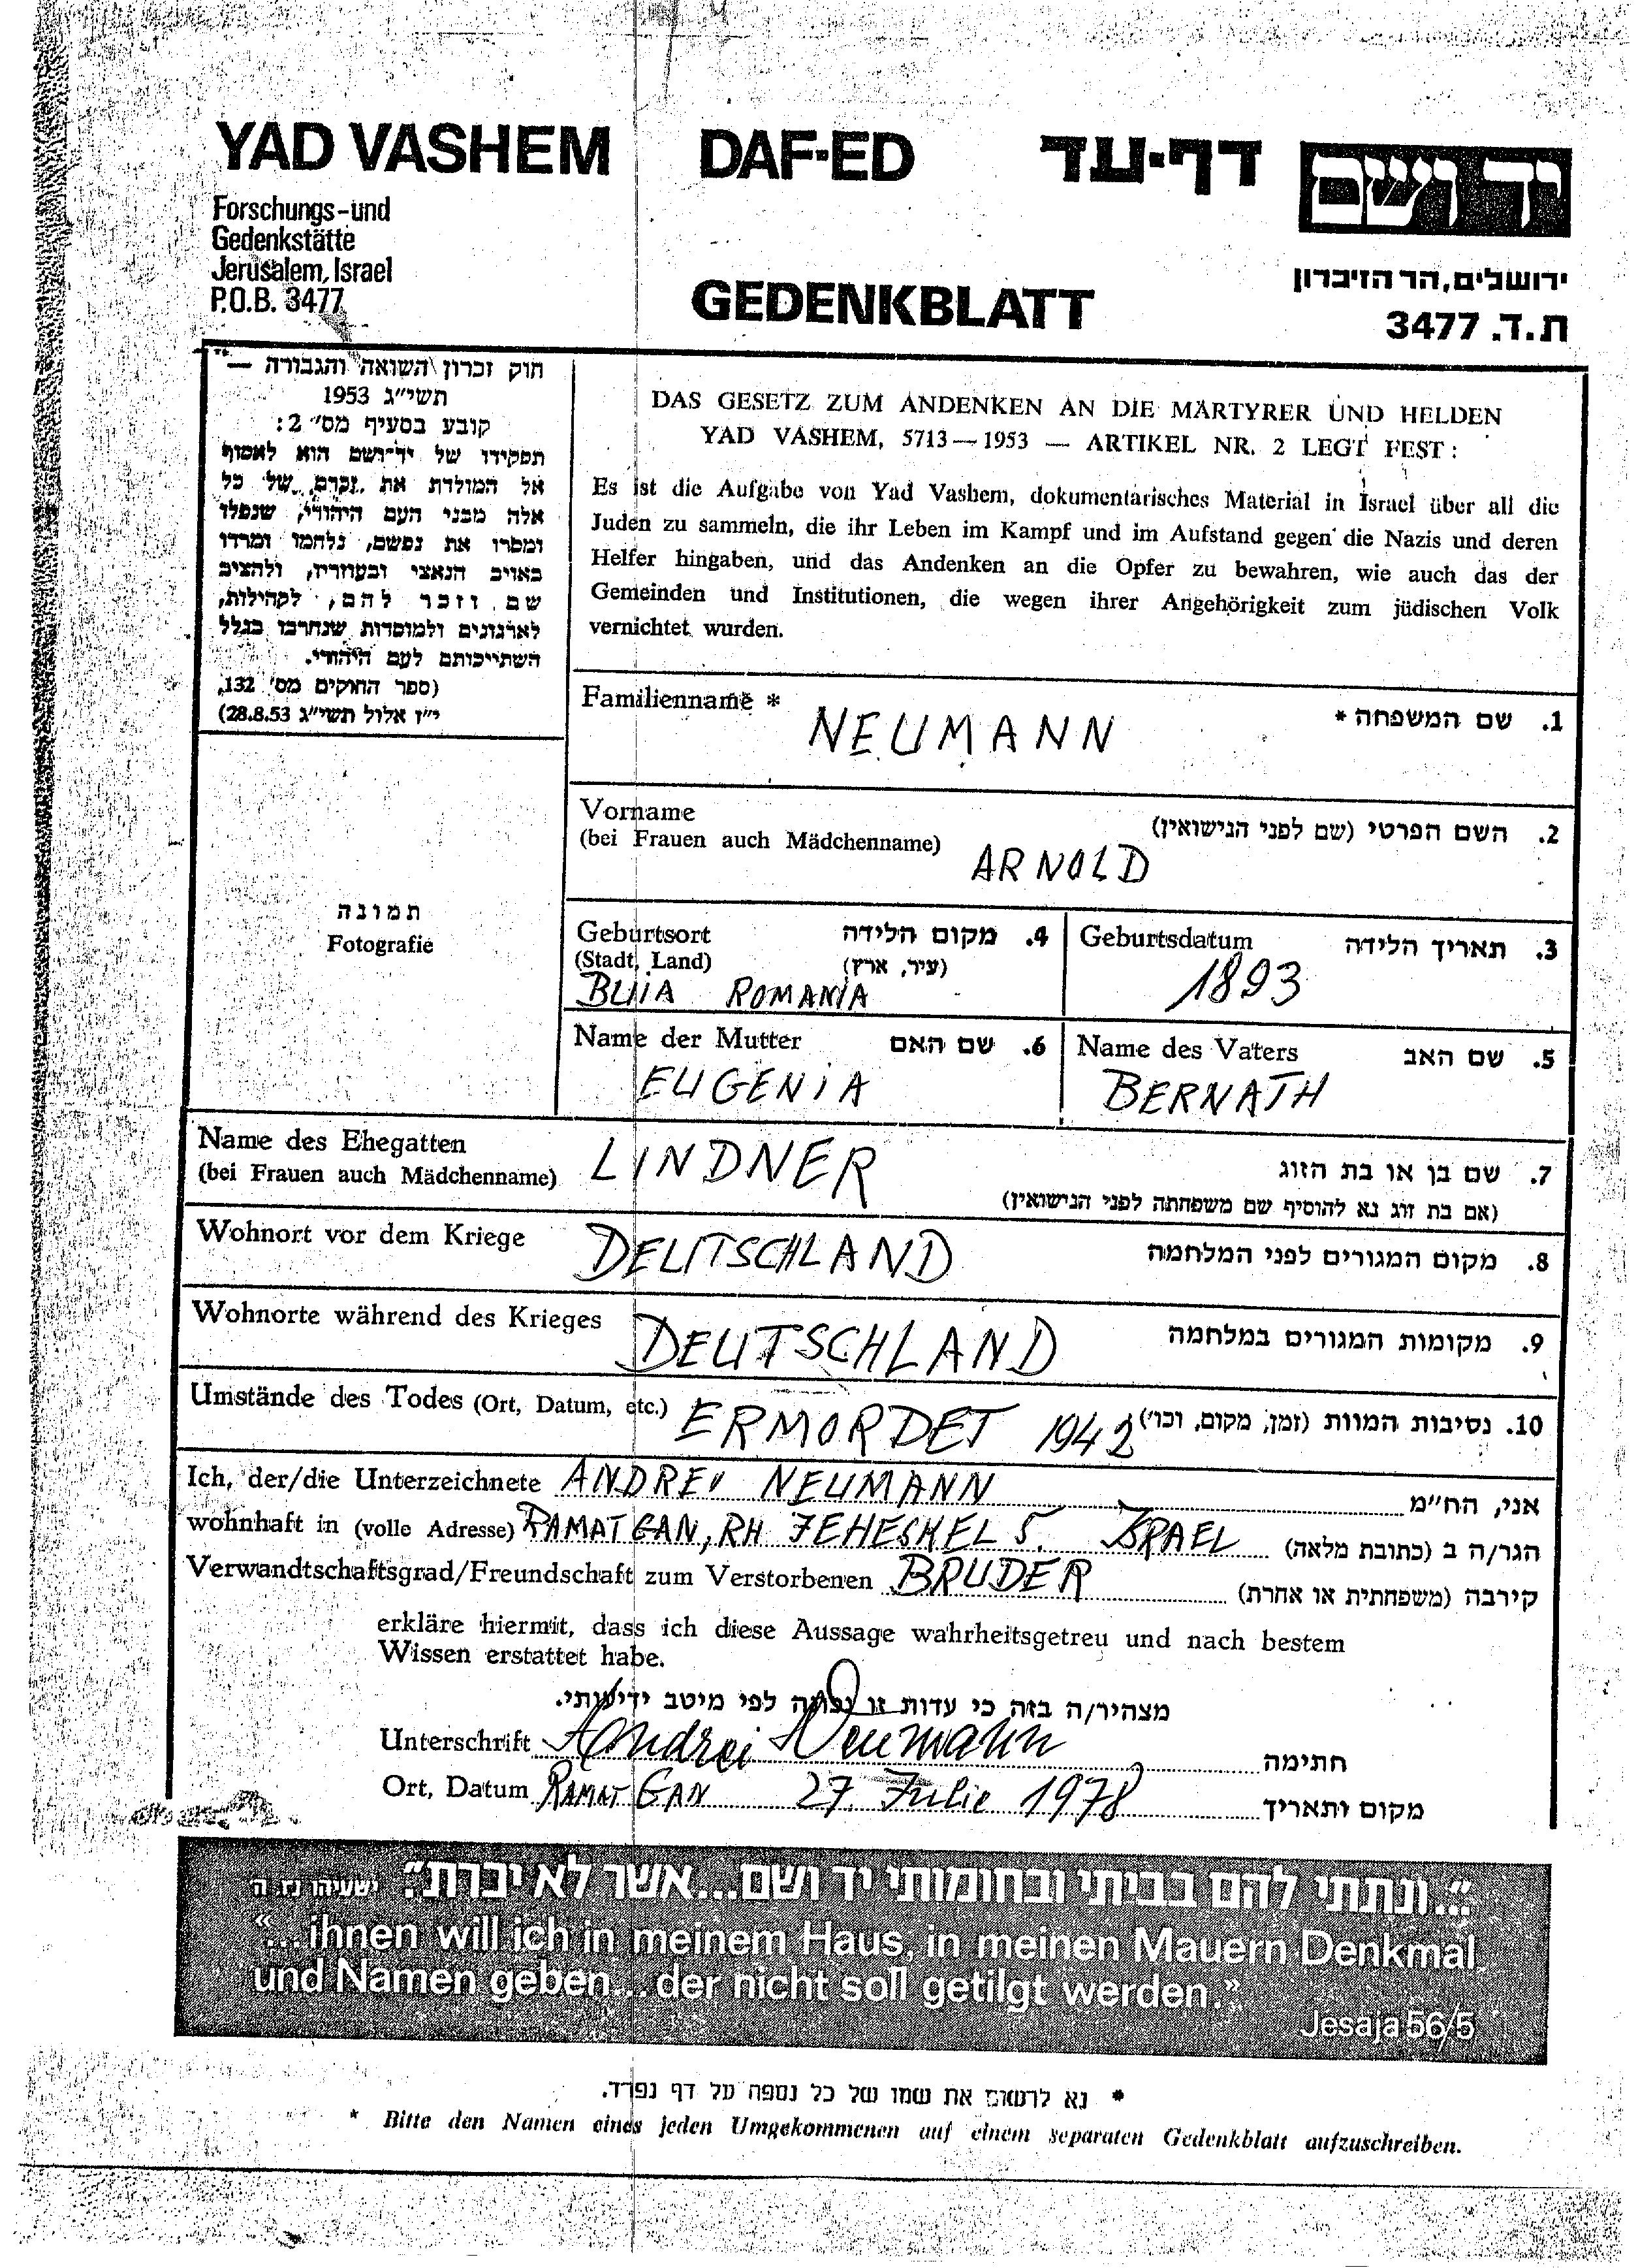 YAD VASHEM DAF-ED דף-עד יד ושם
Forschungs-und
Gedenkstätte
Jerusalem, Israel
P.O.B. 3477
GEDENKBLATT
ירושלים, הר הזיכרון
ת.ד. 3477
חוק זכרון השואה והגבורה —
תשי״ג 1953
קובע בסעיף מס׳ 2:
תפקידו של יד־ושם הוא לאסוף
אל המולדת את זכרם של כל
אלה מבני העם היהודי, שנפלו
ומסרו את נפשם, נלחמו ומרדו
באויב הנאצי ובעוזריו, ולהציב
שם וזכר להם, לקהילות,
לארגונים ולמוסדות שנחרבו בגלל
השתייכותם לעם היהודי.
(ספר החוקים מס׳ 132,
י״ז אלול תשי״ג 28.8.53)
DAS GESETZ ZUM ANDENKEN AN DIE MÄRTYRER UND HELDEN
YAD VASHEM, 5713—1953 — ARTIKEL NR. 2 LEGT FEST:
Es ist die Aufgabe von Yad Vashem, dokumentarisches Material in Israel über all die
Juden zu sammeln, die ihr Leben im Kampf und im Aufstand gegen die Nazis und deren
Helfer hingaben, und das Andenken an die Opfer zu bewahren, wie auch das der
Gemeinden und Institutionen, die wegen ihrer Angehörigkeit zum jüdischen Volk
vernichtet wurden.
Familienname * NEUMANN 1. שם המשפחה *
Vorname
(bei Frauen auch Mädchenname) ARNOLD 2. השם הפרטי (שם לפני הנישואין)
תמונה
Fotografie
Geburtsort 4. מקום הלידה
(Stadt, Land) (עיר, ארץ)
BUIA ROMANIA
Geburtsdatum 3. תאריך הלידה
1893
Name der Mutter 6. שם האם
EUGENIA
Name des Vaters 5. שם האב
BERNATH
Name des Ehegatten
(bei Frauen auch Mädchenname) LINDNER 7. שם בן או בת הזוג
(אם בת זוג נא להוסיף שם משפחתה לפני הנישואין)
Wohnort vor dem Kriege DEUTSCHLAND 8. מקום המגורים לפני המלחמה
Wohnorte während des Krieges DEUTSCHLAND 9. מקומות המגורים במלחמה
Umstände des Todes (Ort, Datum, etc.) ERMORDET 1942 10. נסיבות המוות (זמן, מקום, וכו׳)
Ich, der/die Unterzeichnete ANDREI NEUMANN אני, הח״מ
wohnhaft in (volle Adresse) RAMAT GAN, RH JEHESKEL 5. ISRAEL הגר/ה ב (כתובת מלאה)
Verwandtschaftsgrad/Freundschaft zum Verstorbenen BRUDER קירבה (משפחתית או אחרת)
erkläre hiermit, dass ich diese Aussage wahrheitsgetreu und nach bestem
Wissen erstattet habe.
מצהיר/ה בזה כי עדות זו נכונה לפי מיטב ידיעותי.
Unterschrift Andrei Neumann חתימה
Ort, Datum RAMAT GAN 27 Julie 1978 מקום ותאריך
״...ונתתי להם בביתי ובחומותי יד ושם...אשר לא יכרת״. ישעיהו נו, ה
“...ihnen will ich in meinem Haus, in meinen Mauern Denkmal
und Namen geben...der nicht soll getilgt werden.”
Jesaja 56/5
* נא לרשום את שמו של כל נספה על דף נפרד.
* Bitte den Namen eines jeden Umgekommenen auf einem separaten Gedenkblatt aufzuschreiben.